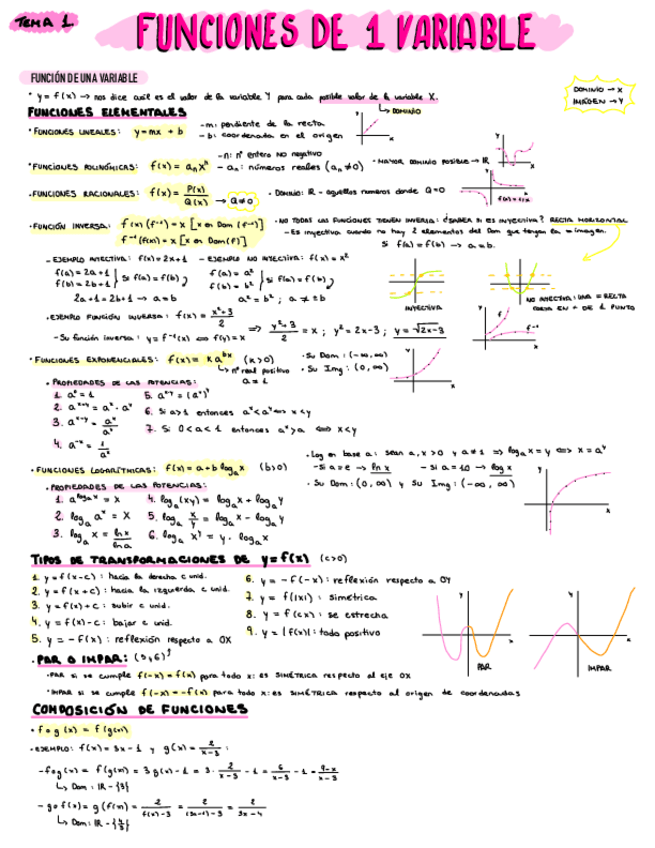 TEMA 1
FUNCIONES DE 1 VARIABLE
FUNCIÓN DE UNA VARIABLE
· y = f(x) → nos dice cuál es el valor de la variable Y para cada posible valor de la variable X.
↳ DOMINIO
DOMINIO → X
IMAGEN → Y
FUNCIONES ELEMENTALES
· FUNCIONES LINEALES: y = mx + b
- m: pendiente de la recta
- b: coordenada en el origen
· FUNCIONES POLINÓMICAS: f(x) = aₙxⁿ
- n: nº entero NO negativo
- aₙ: números reales (aₙ ≠ 0)
· MAYOR DOMINIO POSIBLE → IR
· FUNCIONES RACIONALES: f(x) = P(x)/Q(x) → Q ≠ 0
· DOMINIO: IR - aquellos numeros donde Q=0
· FUNCIÓN INVERSA: f(x)(f⁻¹) = x [x en Dom (f⁻¹)]
f⁻¹(f(x)) = x [x en Dom(f)]
· NO TODAS LAS FUNCIONES TIENEN INVERSA: ¿SABER SI ES INYECTIVA? RECTA HORIZONTAL
- Es inyectiva cuando no hay 2 elementos del Dom que tengan la = imagen.
Si f(a) = f(b) → a = b.
- EJEMPLO INYECTIVA: f(x) = 2x+1
f(a) = 2a+1
f(b) = 2b+1
Si f(a) = f(b)
2a+1 = 2b+1 → a = b
- EJEMPLO NO INYECTIVA: f(x) = x²
f(a) = a²
f(b) = b²
Si f(a) = f(b)
a² = b² ; a ≠ ±b
INYECTIVA
NO INYECTIVA: UNA = RECTA
CORTA EN + DE 1 PUNTO
· EJEMPLO FUNCIÓN INVERSA: f(x) = (x²+3)/2
- Su función inversa: y = f⁻¹(x) ⟺ f(y) = x
⇒ (y²+3)/2 = x ; y² = 2x-3 ; y = √2x-3
· FUNCIONES EXPONENCIALES: f(x) = K a^bx (K>0)
↳ nº real positivo
a = 1
· Su Dom: (-∞, ∞)
· Su Img: (0, ∞)
· PROPIEDADES DE LAS POTENCIAS:
1. a⁰ = 1
2. aˣ⁺ʸ = aˣ · aʸ
3. aˣ⁻ʸ = aˣ/aʸ
4. a⁻ˣ = 1/aˣ
5. aˣ·ʸ = (aˣ)ʸ
6. Si a>1 entonces aˣ<aʸ ⟺ x<y
7. Si 0<a<1 entonces aˣ>a ⟺ x<y
· FUNCIONES LOGARÍTMICAS: f(x) = a+b logₐ x (b>0)
· Log en base a: sean a,x > 0 y a≠1 ⇒ logₐ x = y ⟺ x = aʸ
- Si a = e → ln x
- Si a = 10 → log x
· Su Dom: (0, ∞) y Su Img: (-∞, ∞)
· PROPIEDADES DE LAS POTENCIAS:
1. a^logₐ x = x
2. logₐ aˣ = x
3. logₐ x = ln x/ln a
4. logₐ (xy) = logₐ x + logₐ y
5. logₐ x/y = logₐ x - logₐ y
6. logₐ xʸ = y · logₐ x
TIPOS DE TRANSFORMACIONES DE y = f(x) (c>0)
1. y = f(x-c) : hacia la derecha c unid.
2. y = f(x+c) : hacia la izquierda c unid.
3. y = f(x)+c : subir c unid.
4. y = f(x)-c : bajar c unid.
5. y = -f(x) : reflexión respecto a OX
6. y = -f(-x) : reflexión respecto a OY
7. y = f(|x|) : simétrica
8. y = f(cx) : se estrecha
9. y = |f(x)| : todo positivo
· PAR O IMPAR: (5,6)
· PAR si se cumple f(-x) = f(x) para todo x: es SIMÉTRICA respecto al eje OX
· IMPAR si se cumple f(-x) = -f(x) para todo x: es SIMÉTRICA respecto al origen de coordenadas
PAR
IMPAR
COMPOSICIÓN DE FUNCIONES
· f∘g (x) = f(g(x))
· EJEMPLO: f(x) = 3x-1 y g(x) = 2/(x-3) :
- f∘g(x) = f(g(x)) = 3g(x)-1 = 3 · 2/(x-3) - 1 = 6/(x-3) - 1 = (9-x)/(x-3)
↳ Dom: IR - {3}
- g∘f(x) = g(f(x)) = 2/(f(x)-3) = 2/((3x-1)-3) = 2/(3x-4)
↳ Dom: IR - {4/3}